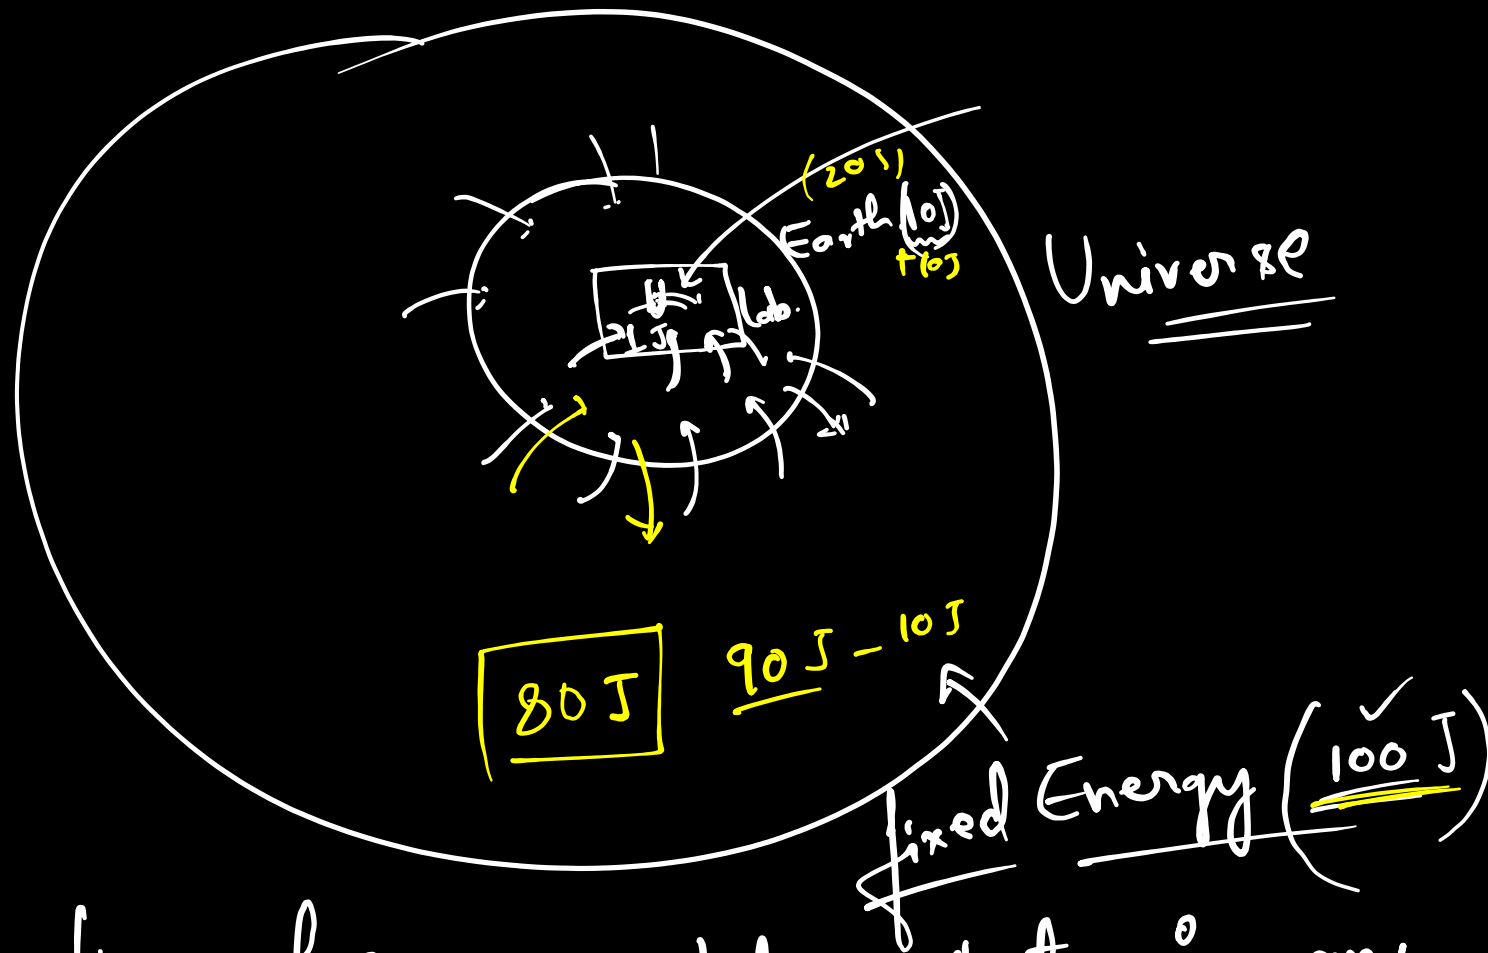 (20J)
Earth (10J)
+10J
Universe
Lab.
1J
90J - 10J
80J
fixed Energy (100 J)